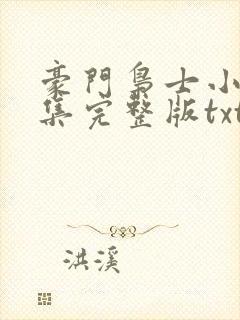 豪門梟士小
集完整版txt
洪溪